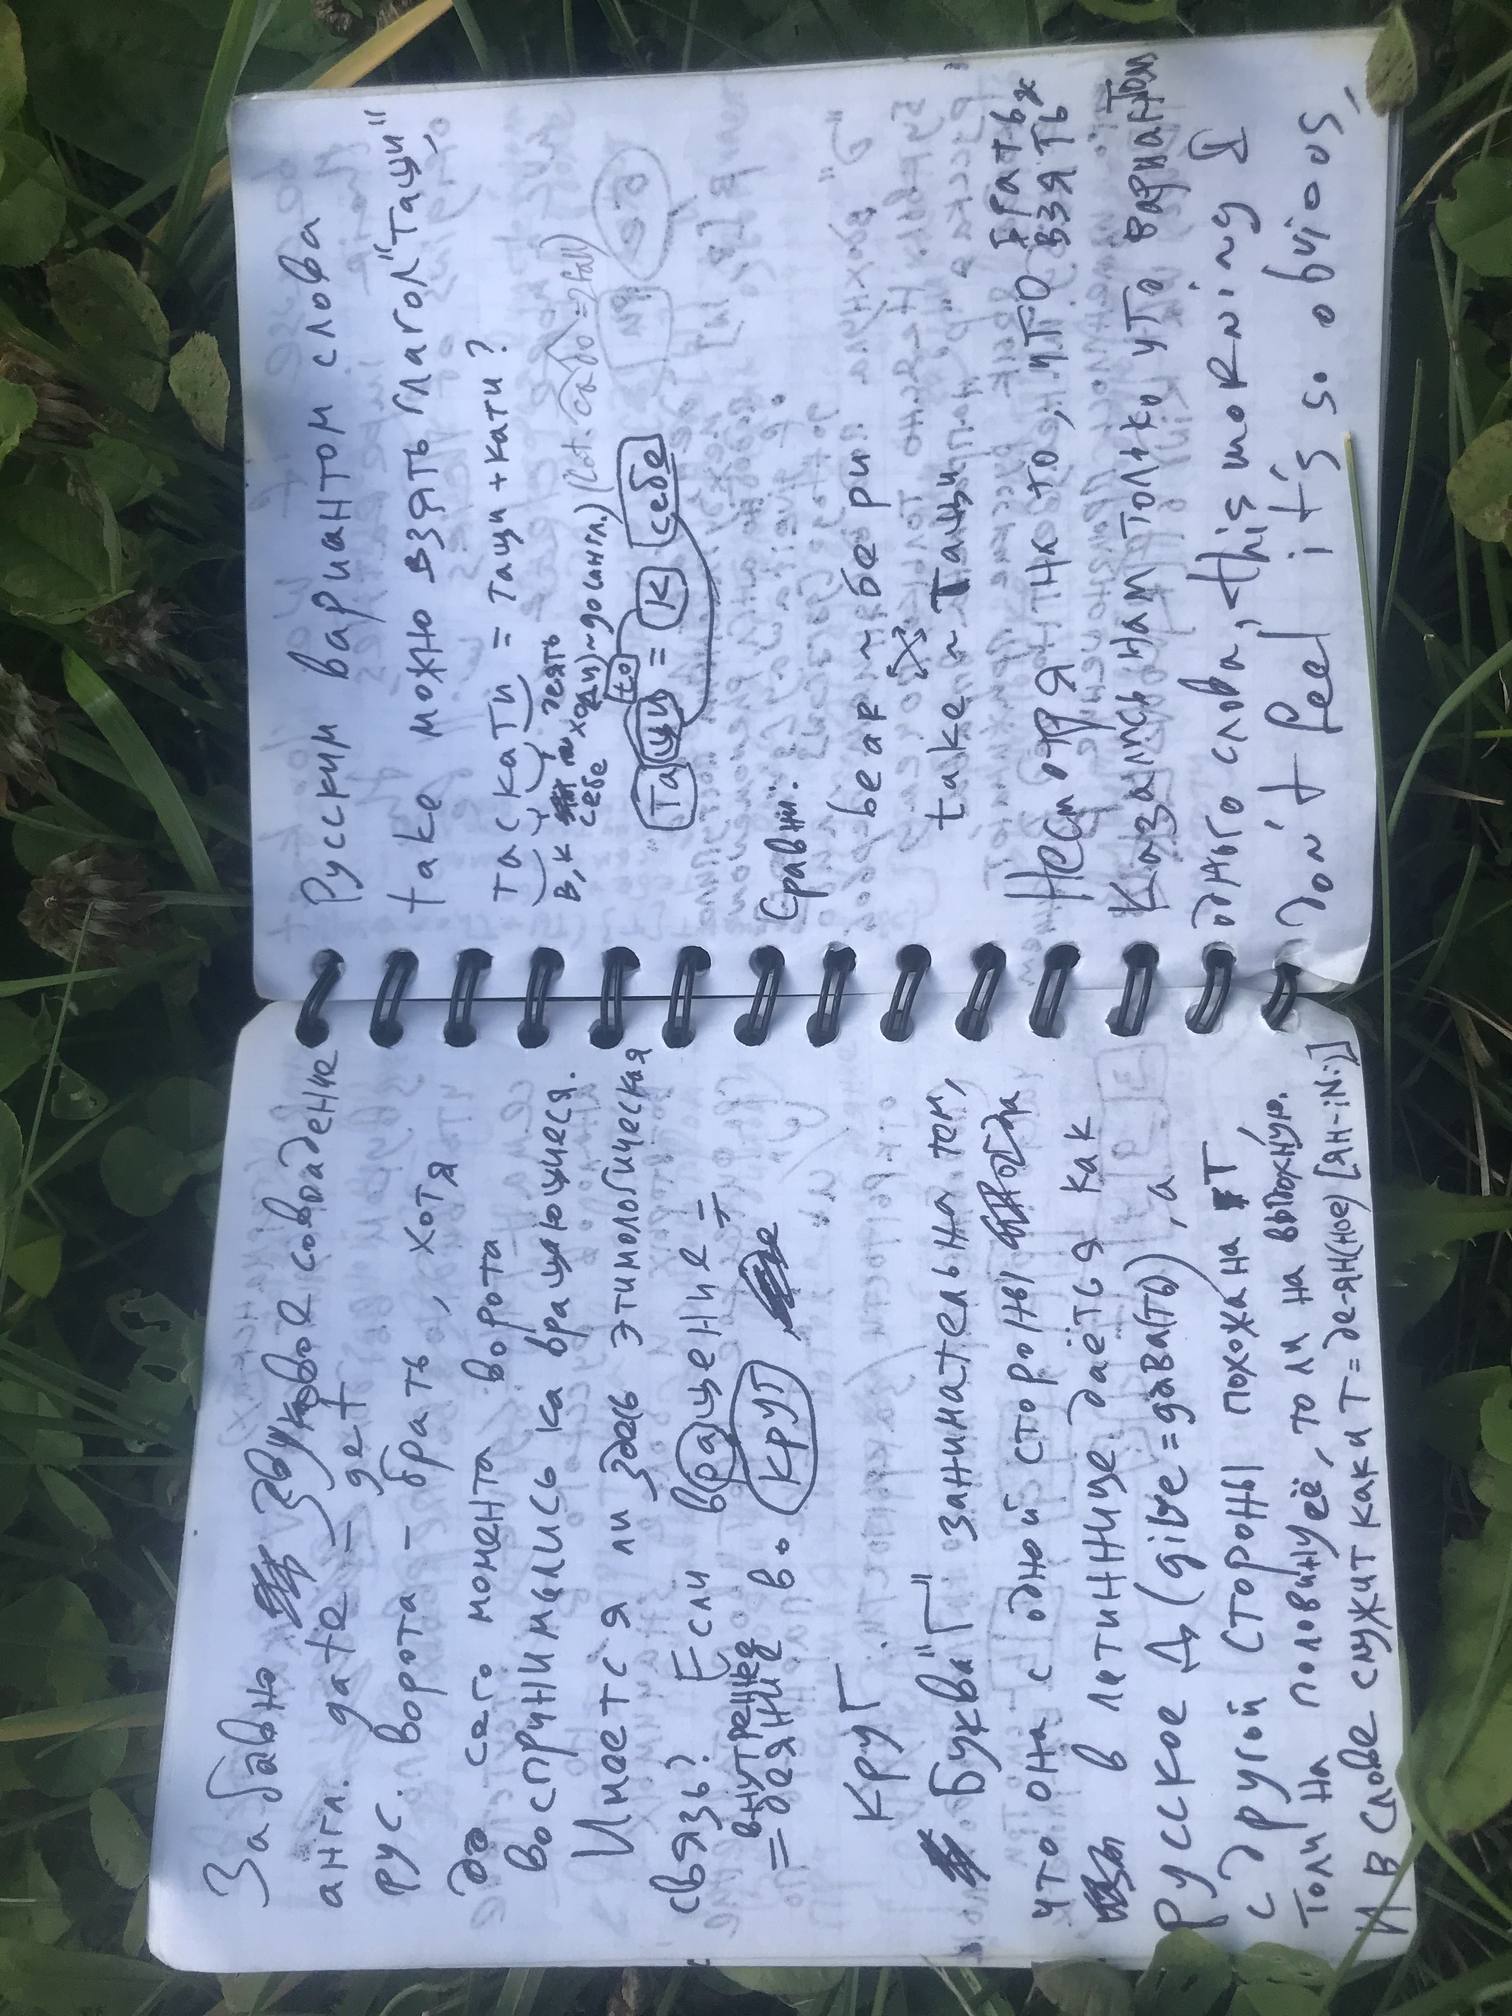 Забавно звуковое совпадение
англ. gate – get
рус. ворота – брать, хотя
до сего момента ворота
воспринимались как вращающиеся.
Имеется ли здесь этимологическая
связь? Если вращение =
= внутреннее деяние в о круг
круг
Буква "Г" занимательна тем,
что она с одной стороны
в латинице даётся как
Русское Д (give = дава(ть), а
с другой стороны похожа на Т,
толи на половину её, то ли на выдохную.
И в слове служит как и Т = де-ян(ное) [ян-iNь]
Русским вариантом слова
take можно взять глагол "Тащи"
Таскати = Тащи + кати?
в, к себе ходи ~ до (англ.) (lat. cado = 2 fall)
деять
to
Та щи = к себе
Сравни:
bear ~ бери
take ~ Тащи
Несмотря на то, что брать ж взять
казались нам только что вариантом
одного слова, this morning I
don't feel it's so obvious,